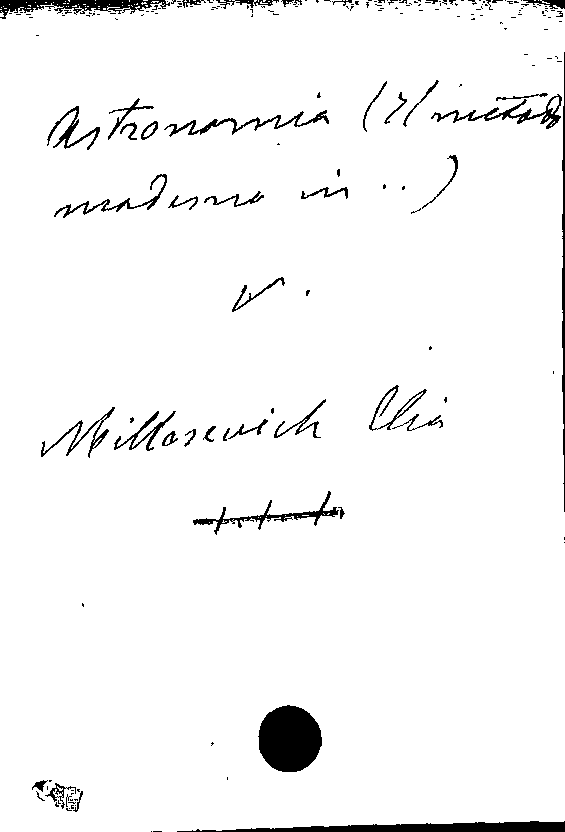 Astronomia (I metodi
moderna in ..)
v.
Millosevich Elia